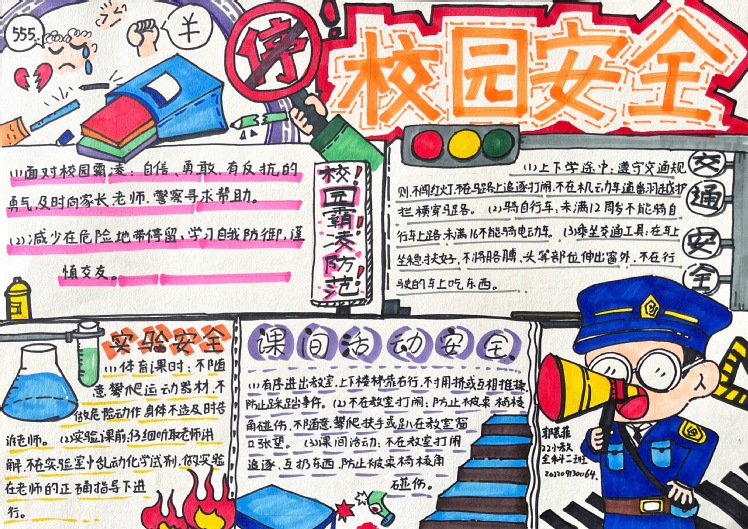 555..
¥
停
校园安全
(1)面对校园霸凌：自信、勇敢、有反抗的
勇气,及时向家长、老师、警察寻求帮助。
(2)减少在危险地带停留、学习自我防御,谨
慎交友。
校园霸凌防范
(1)上下学途中：遵守交通规
则,不闯红灯,不在马路上追逐打闹,不在机动车道
拦横穿马路。(2)骑自行车,未满12周岁不能骑自
行车上路,未满16不能骑电动车。(3)乘坐交通工具:在车上
坐稳扶好,不将胳膊、头等部位伸出窗外,不在行
驶的车上吃东西。
交通安全
实验安全
(1)体育课时：不随
意攀爬运动器材,不
做危险动作,身体不适及时告
诉老师。(2)实验课前:仔细听取老师讲
解,不在实验室中乱动化学试剂,做实验
在老师的正确指导下进
行。
课间活动安全
(1)有序进出教室,上下楼梯靠右行,不拥挤或互相推搡,
防止踩踏事件。(2)不在教室打闹:防止被桌椅棱
角碰伤,不随意攀爬扶手或趴在教室窗
口张望。(3)课间活动:不在教室打闹
追逐、互扔东西,防止被桌椅棱角
碰伤。
22小教
全科二班